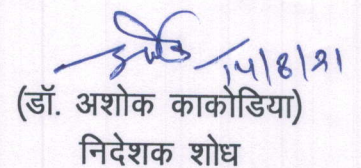 14/8/21
(डॉ. अशोक काकोडिया)
निदेशक शोध